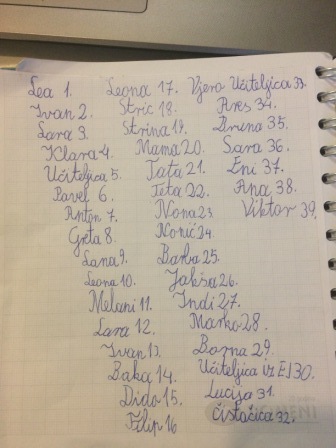 Lea 1.
Ivan 2.
Lara 3.
Klara 4.
Učiteljica 5.
Pavel 6.
Anton 7.
Greta 8.
Lana 9.
Leona 10.
Melani 11.
Lara 12.
Ivan 13.
Baka 14.
Dido 15.
Filip 16
Leona 17.
Stric 18.
Strina 19.
Mama 20.
Tata 21.
Teta 22.
Nona 23.
Nonić 24.
Barba 25.
Jakša 26.
Indi 27.
Marko 28.
Bozna 29.
Učiteljica iz EJ 30.
Lucija 31.
Čistačica 32.
Vjero Učiteljica 33.
Ares 34.
Bruna 35.
Sara 36.
Eni 37.
Ana 38.
Viktor 39.